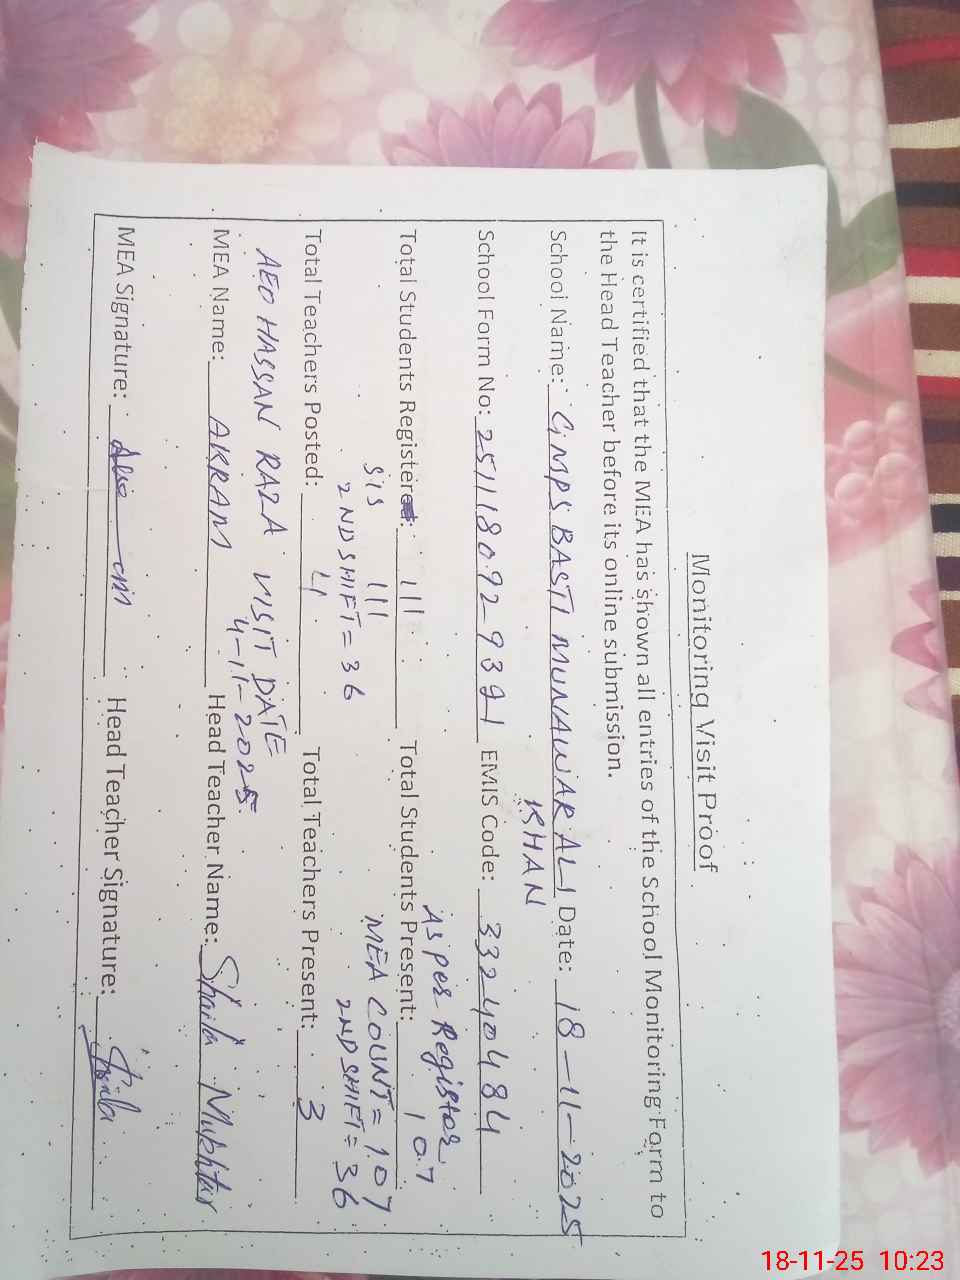 Monitoring Visit Proof
It is certified that the MEA has shown all entries of the School Monitoring Form to
the Head Teacher before its online submission.
School Name: GMPS BASTI MUNAWAR ALI Date: 18-11-2025
KHAN
School Form No: 25111809 2-9391 EMIS Code: 33240484
As per Register
Total Students Registered: 111 Total Students Present: 107
SIS 111 MEA COUNT = 107
2ND SHIFT = 36 2ND SHIFT = 36
Total Teachers Posted: 4 Total Teachers Present: 3
AEO HASSAN RAZA VISIT DATE
4-11-2025
MEA Name: AKRAM Head Teacher Name: Shaila Mukhtar
MEA Signature: Head Teacher Signature: Shaila
18-11-25 10:23